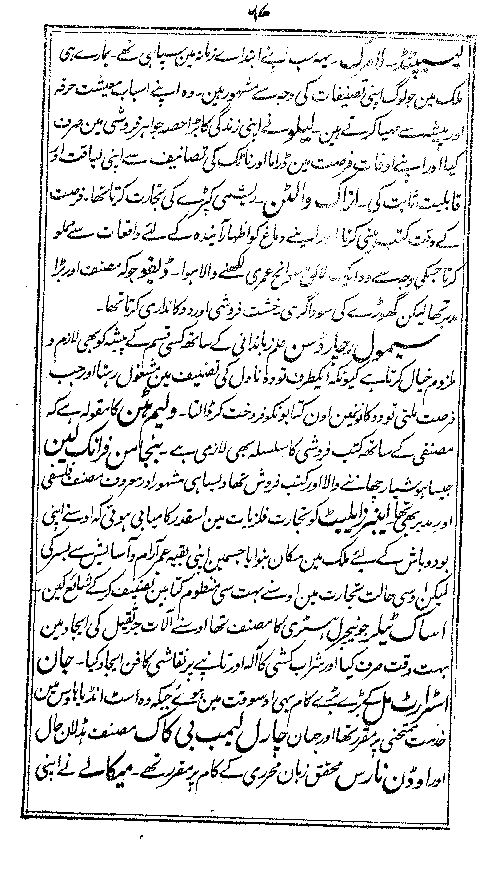 ۵۶
یہ سب اپنے ابتداے زمانہ مین سپاہی تھے۔ ہمارے ہی
ملک مین جو لوگ اپنی تصنیفات کی وجہ سے مشہور ہین۔ وہ اپنے اسباب معیشت حرفہ
اور پیشہ سے مہیا کرتے ہین۔ لیلو نے اپنی زندگی کا بڑا حصہ جواہر فروشی مین صرف
کیا اور اپنے اوقات فرصت مین ڈراما اور ناٹک کی تصانیف سے اپنی لیاقت اور
قابلیت ثابت کی۔ ازاک والٹن۔ ریشمی کپڑے کی تجارت کرتا تھا۔ فرصت
کے وقت کتب بینی کرتا اور اپنے دماغ کو اظہار آیندہ کے لئے واقعات سے مملو
کرتا جسکی وجہ سے وہ ایک لائق سوانح عمری لکھنے والا ہوا۔ ڈیفو جو کہ مصنف اور بڑا
مدبر تھا لیکن گھوڑے کی سوداگری خشت فروشی اور دوکانداری کرتا تھا۔
سیمول رچارڈسن علم زباندانی کے ساتھ کسی قسم کے پیشہ کو بھی لازم و
ملزوم خیال کرتا ہے کیونکہ ایکطرف تو وہ ناول کی تصنیف مین مشغول رہتا اور جب
فرصت ملتی تو دوکانمین اون کتابونکو فروخت کر ڈالتا۔ ولیم ہٹن کا مقولہ ہے کہ
مصنفی کے ساتھ کتب فروشی کا سلسلہ بھی لازمی ہے۔ بنجامن فرانک لین
جیسا ہوشیار چھاپنے والا اور کتب فروش تھا ویسا ہی مشہور اور معروف مصنف فلسفی
اور مدبر بھی تھا ایبنزر ایلیٹ کو تجارت فلزیات مین اسقدر کامیابی ہوئی کہ اوسنے اپنی
بود و باش کے لئے ملک مین مکان بنوایا جسمین اپنی بقیہ عمر آرام و آسایش سے بسر کی
لیکن اوسی حالت تجارت مین اوسنے بہت سی منظوم کتابین تصنیف کرکے شائع کین۔
اساک ٹیلر جو نیچرل ہسٹری کا مصنف تھا اوسنے آلات جرثقیل کی ایجاد مین
بہت وقت صرف کیا اور شراب کشی کا آلہ اور تانبے پر نقاشی کا فن ایجاد کیا۔ جان
اسٹارٹ مل کے بڑے بڑے کام بھی اوسوقت مین ہوئے جبکہ وہ است انڈیا ہاوس مین
خدمت ممتحنی پر مقرر تھا اور جہان چارل لیمب پی کاک مصنف ہڈلان ہال
اور اوڈن نارس محقق زبان محرری کے کام پر مقرر تھے۔ میکالے نے اپنی